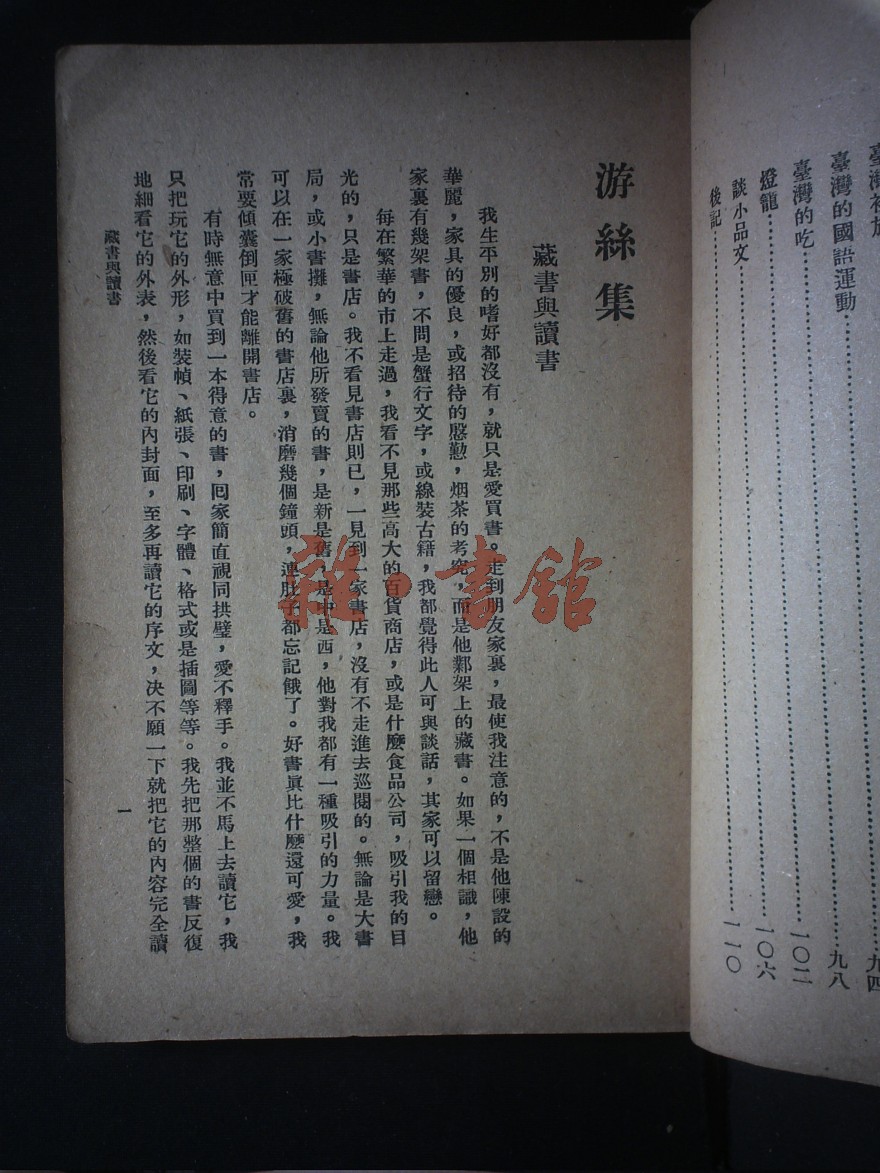 臺灣的國語運動……九八
臺灣的吃……一〇二
燈籠……一〇六
談小品文
後記……一一〇
游絲集
藏書與讀書
我生平別的嗜好都沒有，就只是愛買書。走到朋友家裏，最使我注意的，不是他陳設的
華麗，家具的優良，或招待的慇懃，烟茶的考究，而是他鄴架上的藏書。如果一個相識，他
家裏有幾架書，不問是蟹行文字，或線裝古籍，我都覺得此人可與談話，其家可以留戀。
每在繁華的市上走過，我看不見那些高大的百貨商店，或是什麼食品公司，吸引我的目
光的，只是書店。我不看見書店則已，一見到一家書店，沒有不走進去巡閱的。無論是大書
局，或小書攤，無論他所發賣的書，是新是舊，是中是西，他對我都有一種吸引的力量。我
可以在一家極破舊的書店裏，消磨幾個鐘頭，連肚子都忘記餓了。好書眞比什麼還可愛，我
常要傾囊倒匣才能離開書店。
有時無意中買到一本得意的書，回家簡直視同拱璧，愛不釋手。我並不馬上去讀它，我
只把玩它的外形，如裝幀、紙張、印刷、字體、格式或是插圖等等。我先把那整個的書反復
地細看它的外表，然後看它的內封面，至多再讀它的序文，決不願一下就把它的內容完全讀
藏書與讀書
一
雜·書館